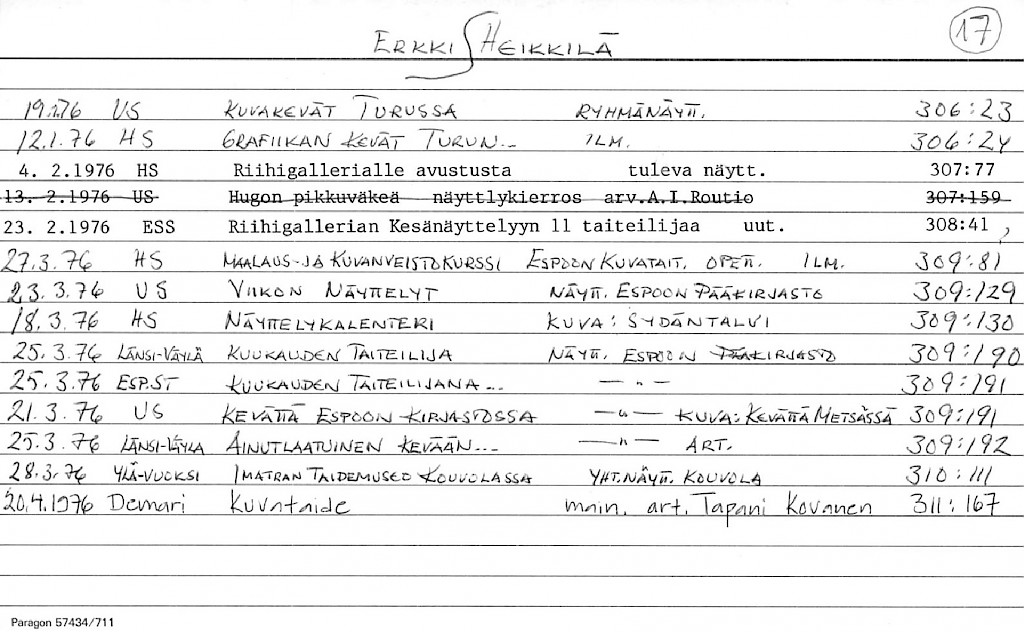 ERKKI HEIKKILÄ 17
19.1.76 US KUVAKEVÄT TURUSSA RYHMÄNÄYTT. 306:23
12.1.76 HS GRAFIIKAN KEVÄT TURUN... ILM. 306:24
4. 2.1976 HS Riihigallerialle avustusta tuleva näytt. 307:77
13. 2.1976 US Hugon pikkuväkeä näyttlykierros arv.A.I.Routio 307:159
23. 2.1976 ESS Riihigallerian Kesänäyttelyyn 11 taiteilijaa uut. 308:41 ,
27.3.76 HS MAALAUS- JA KUVANVEISTOKURSSI ESPOON KUVATAIT. OPETT. ILM. 309:81
23.3.76 US VIIKON NÄYTTELYT NÄYTT. ESPOON PÄÄKIRJASTO 309:129
18.3.76 HS NÄYTTELYKALENTERI KUVA: SYDÄNTALVI 309:130
25.3.76 LÄNSI-VÄYLÄ KUUKAUDEN TAITEILIJA NÄYTT. ESPOON PÄÄKIRJASTO 309:190
25.3.76 ESP.ST KUUKAUDEN TAITEILIJANA... —"— 309:191
21.3.76 US KEVÄTTÄ ESPOON KIRJASTOSSA —"— KUVA: KEVÄTTÄ METSÄSSÄ 309:191
25.3.76 LÄNSI-VÄYLÄ AINUTLAATUINEN KEVÄÄN... —"— ART. 309:192
28.3.76 YLÄ-VUOKSI IMATRAN TAIDEMUSEO KOUVOLASSA YHT.NÄYTT. KOUVOLA 310:111
20.4.1976 Demari Kuvataide main. art. Tapani Kovanen 311:167
Paragon 57434/711